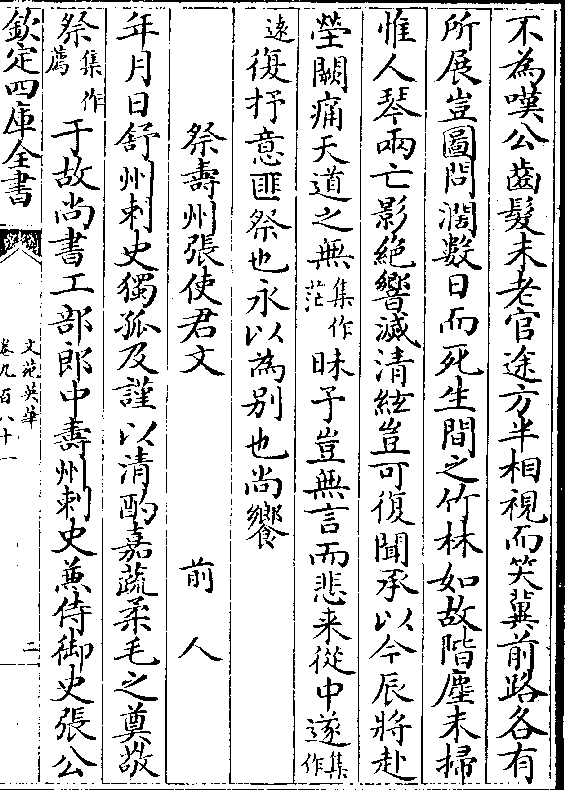 不為嘆公齒髮未老官途方半相視而笑冀前路各有
所展豈圖問濶數日而死生間之竹林如故階塵未掃
惟人琴兩亡影絶響滅清絃豈可復聞承以今辰將赴
塋闕痛天道之無集作茫昧予豈無言而悲来從中遂集作
遠復抒意匪祭也永以為别也尚饗
祭壽州張使君文 前人
年月日舒州刺史獨孤及謹以清酌嘉蔬柔毛之奠敬
祭集作薦于故尚書工部郎中壽州刺史兼侍御史張公
欽定四庫全書
文苑英華
卷九百八十一
二